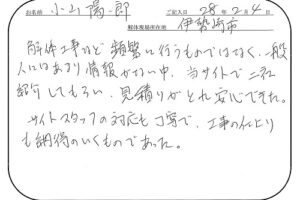 お名前 小山陽一郎 ご記入日 28年2月4日
解体現場所在地 伊勢崎市
解体工事など頻繁に行うものではなく、一般
人にはあまり情報がない中、当サイトで二社
紹介してもらい、見積りがとれ安心できた。
サイトスタッフの対応も丁寧で、工事の仕上り
も納得のいくものであった。